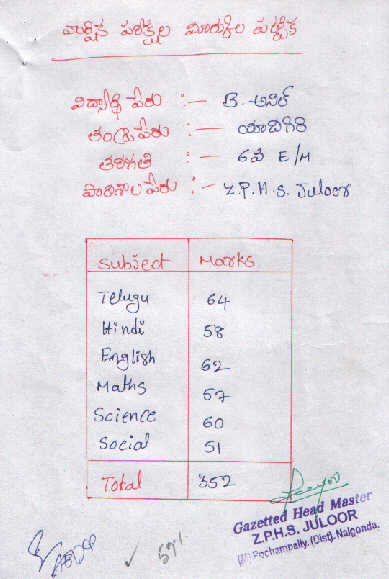 వార్షిక పరీక్షల మార్కుల పట్టిక
విద్యార్థి పేరు :- B. అనిల్
తండ్రి పేరు :- యాదగిరి
తరగతి :- 6వ E/M
పాఠశాల పేరు :- Z.P.H.S. Juloor
Subject Marks
Telugu 64
Hindi 58
English 62
Maths 57
Science 60
Social 51
Total 352
Gazetted Head Master
Z.P.H.S. JULOOR
(M) Pochampally, (Dist). Nalgonda.